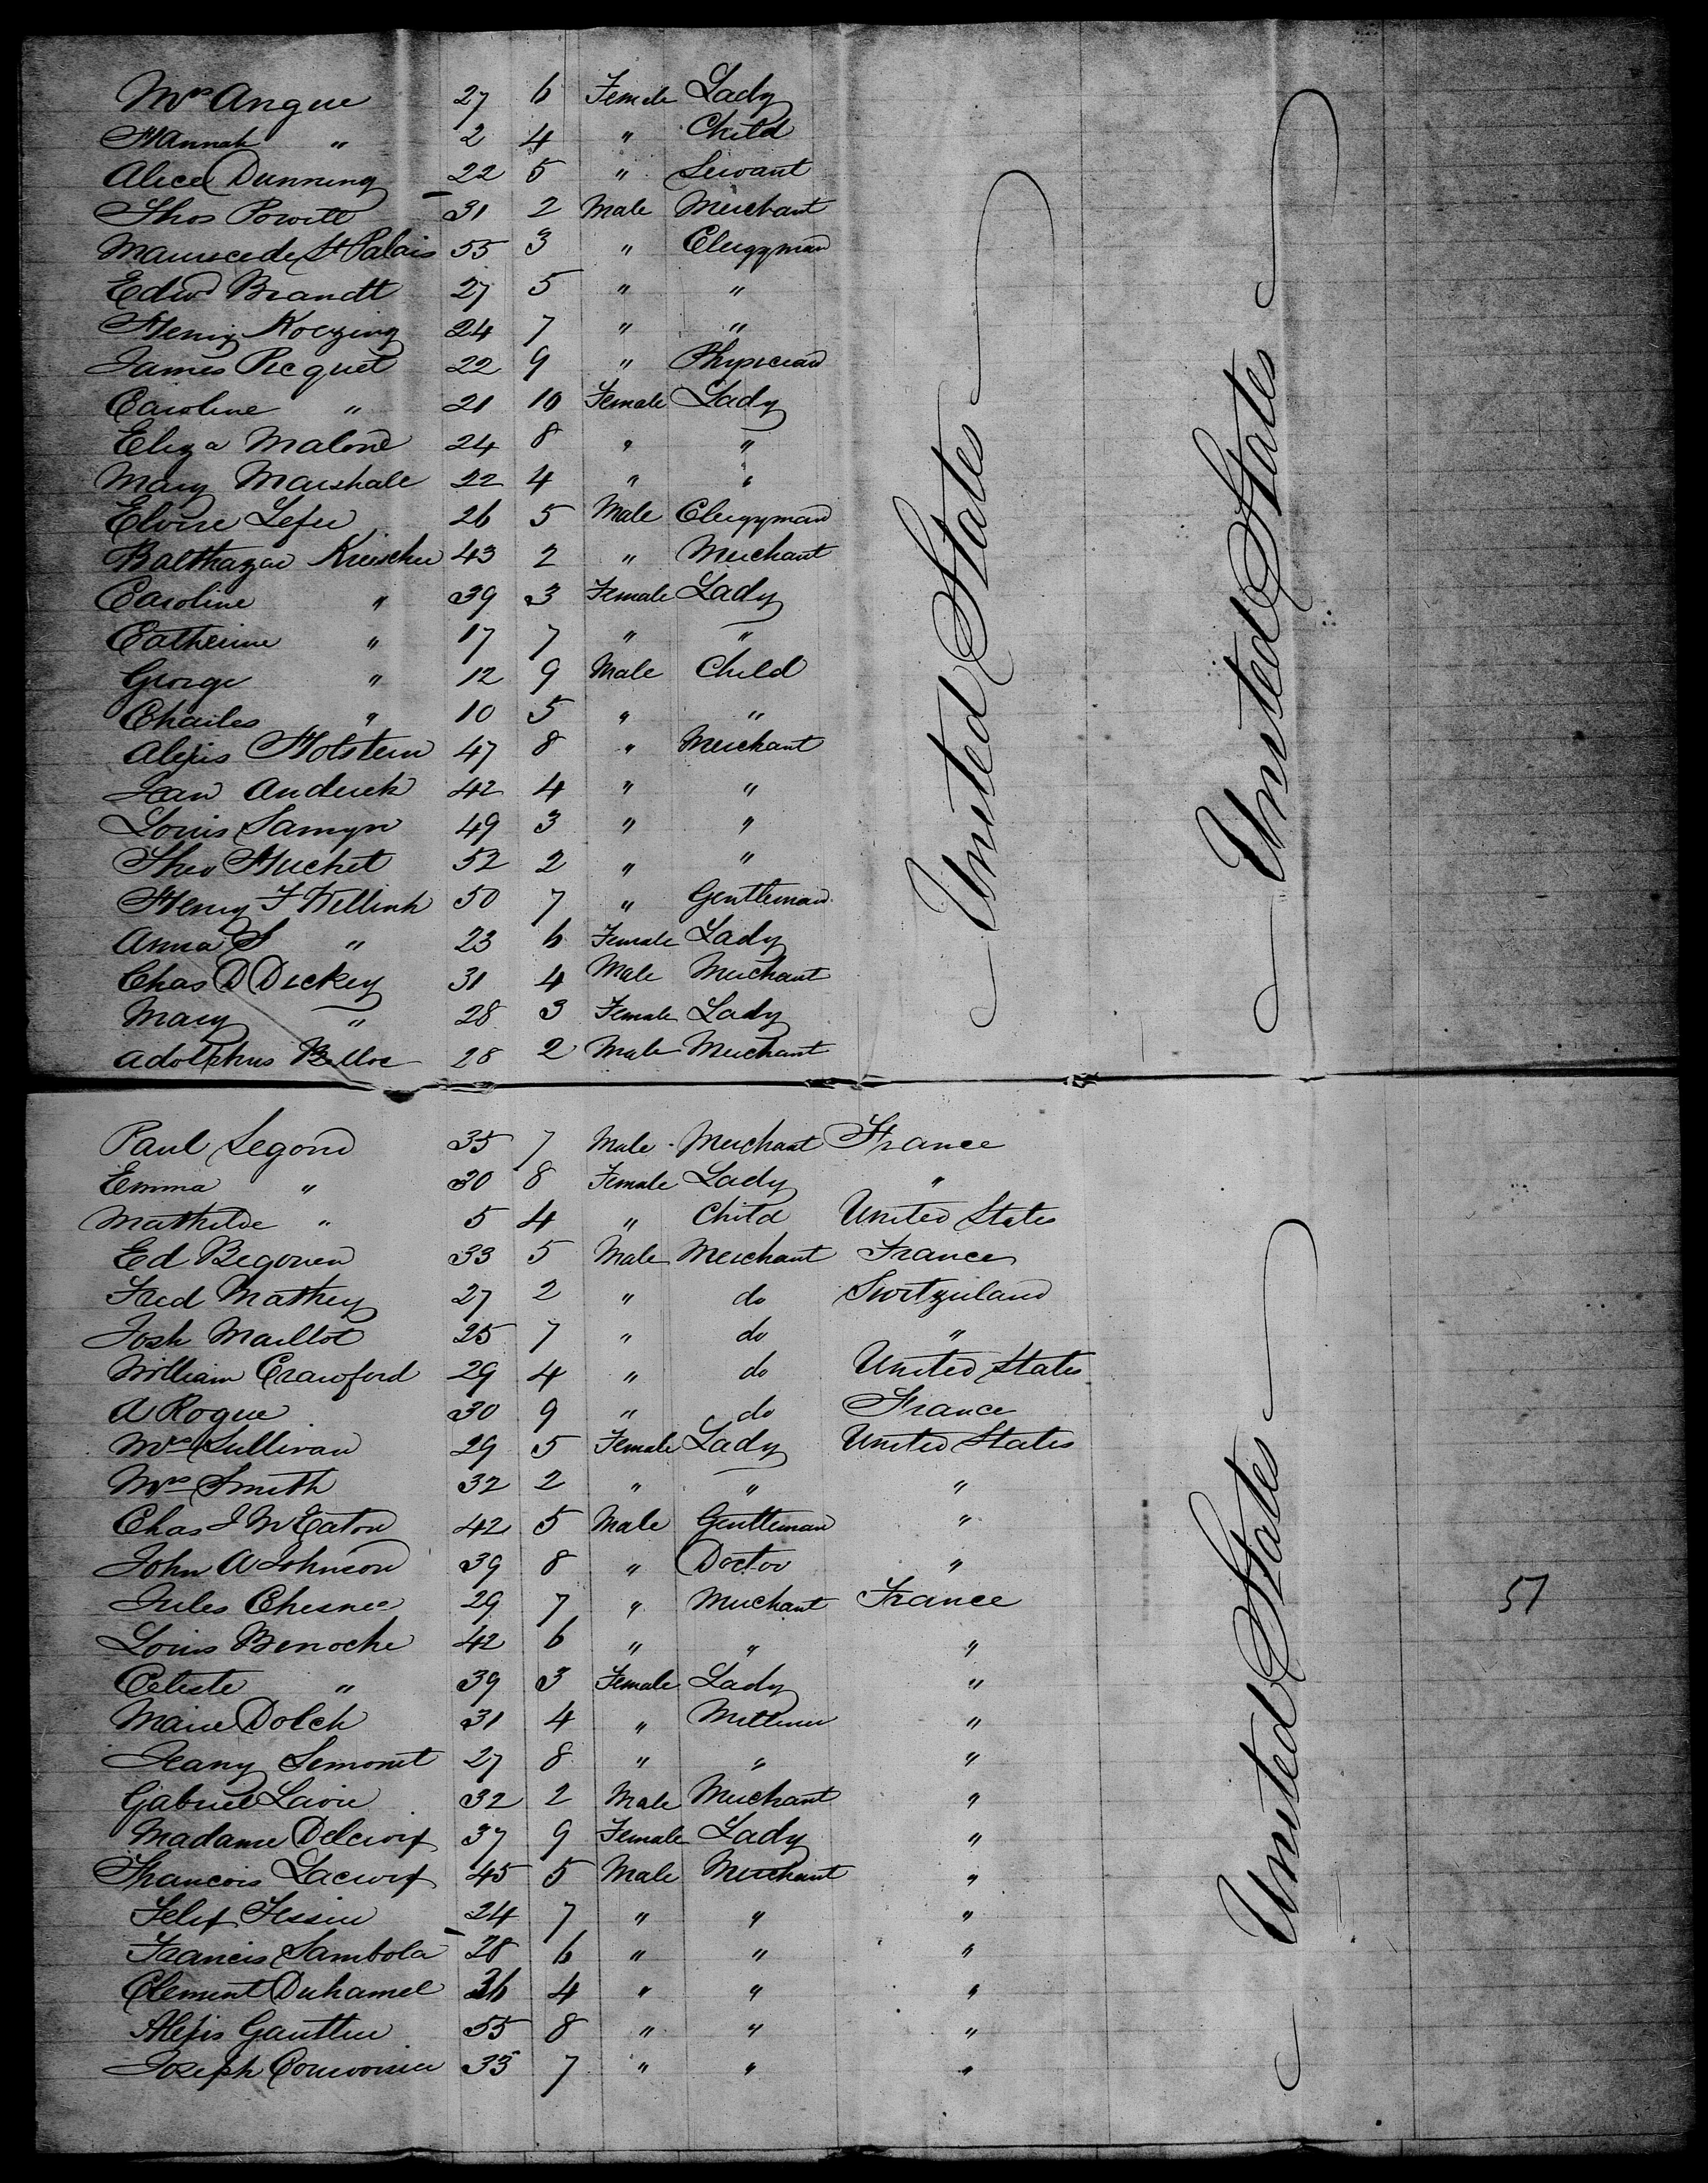 Mrs Angue 27 6 Female Lady
Hannah " 2 4 " Child
Alice Dunning 22 5 " Servant
Thos Powitt 31 2 Male Merchant
Maurice de St Palais 55 3 " Clergyman
Edwd Brandt 27 5 " "
Henry Koezing 24 7 " "
James Picquet 22 9 " Physician
Caroline " 21 10 Female Lady
Eliza Malone 24 8 " "
Mary Marshall 22 4 " "
Eloise Lefer 26 5 Male Clergyman
Balthazar Kreischer 43 2 " Merchant
Caroline " 39 3 Female Lady
Catherine " 17 7 " "
George " 12 9 Male Child
Charles " 10 5 " "
Alexis Holstein 47 8 " Merchant
Jean Anderek 42 4 " "
Louis Samyn 49 3 " "
Theo Huchet 52 2 " "
Henry F Willink 50 7 " Gentleman
Anna S " 23 6 Female Lady
Chas D Dickey 31 4 Male Merchant
Mary " 28 3 Female Lady
Adolphus Belloc 28 2 Male Merchant
United States
United States
Paul Segond 35 7 Male Merchant France
Emma " 30 8 Female Lady "
Mathilde " 5 4 " Child United States
Ed Begouen 33 5 Male Merchant France
Fred Mathey 27 2 " do Switzerland
Josh Maillot 25 7 " do "
William Crawford 29 4 " do United States
A Roque 30 9 " do France
Mrs Sullivan 29 5 Female Lady United States
Mrs Smith 32 2 " " "
Chas J M Eaton 42 5 Male Gentleman "
John A Johnson 39 8 " Doctor "
Jules Chesnee 29 7 " Merchant France
Louis Benoche 42 6 " " "
Celeste " 39 3 Female Lady "
Marie Dolch 31 4 " Milliner "
Jeany Semonet 27 8 " " "
Gabriel Lavie 32 2 Male Merchant "
Madame Delcroix 37 9 Female Lady "
Francois Lacroix 45 5 Male Merchant "
Felix Tessier 24 7 " " "
Francis Sambola 28 6 " " "
Clement Duhamel 36 4 " " "
Alexis Gautier 55 8 " " "
Joseph 33 7 " " "
United States
57